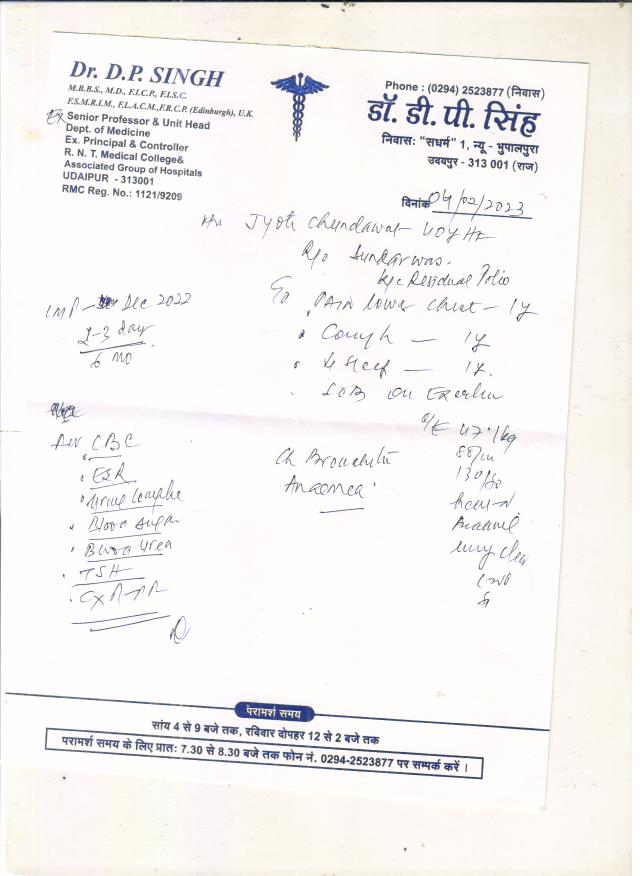 Dr. D.P. SINGH
M.B.B.S., M.D., F.I.C.P., F.I.S.C.
F.S.M.R.I.M., F.L.A.C.M.,F.R.C.P. (Edinburgh), U.K.
Ex Senior Professor & Unit Head
Dept. of Medicine
Ex. Principal & Controller
R. N. T. Medical College&
Associated Group of Hospitals
UDAIPUR - 313001
RMC Reg. No.: 1121/9209
Phone : (0294) 2523877 (निवास)
डॉ. डी. पी. सिंह
निवास: "सधर्म" 1, न्यू - भुपालपुरा
उदयपुर - 313 001 (राज)
दिनांक 04/02/2023
Jyoti Chundawat 40y
R/o Sundarwas.
K/c Residual Polio
LMP - Dec 2022
2-3 day
6 mo
C/o Pain lower chest - 1y
Cough - 1y
↓ Sleep - 1y.
SOB on Exertion
O/E 47.1kg
88/m
130/80
Ch Bronchitis
Anaemia
Adv CBC
ESR
Urine Complete
Blood Sugar
Blood Urea
TSH
परामर्श समय
सांय 4 से 9 बजे तक, रविवार दोपहर 12 से 2 बजे तक
परामर्श समय के लिए प्रात: 7.30 से 8.30 बजे तक फोन नं. 0294-2523877 पर सम्पर्क करें ।